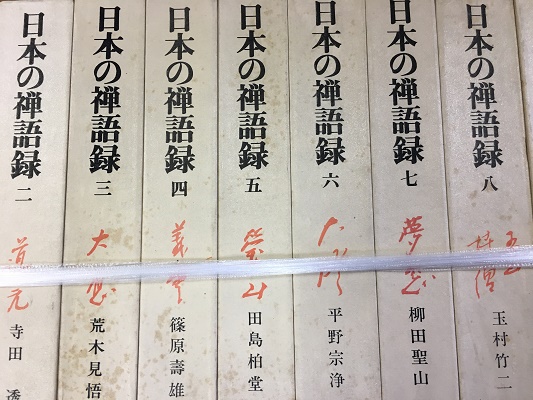 日本の禅語録 二
道元
寺田 透
日本の禅語録 三
大愚
荒木見悟
日本の禅語録 四
義雲
篠原壽雄
日本の禅語録 五
瑩山
田島柏堂
日本の禅語録 六
平野宗浄
日本の禅語録 七
夢窓
柳田聖山
日本の禅語録 八
玉村竹二